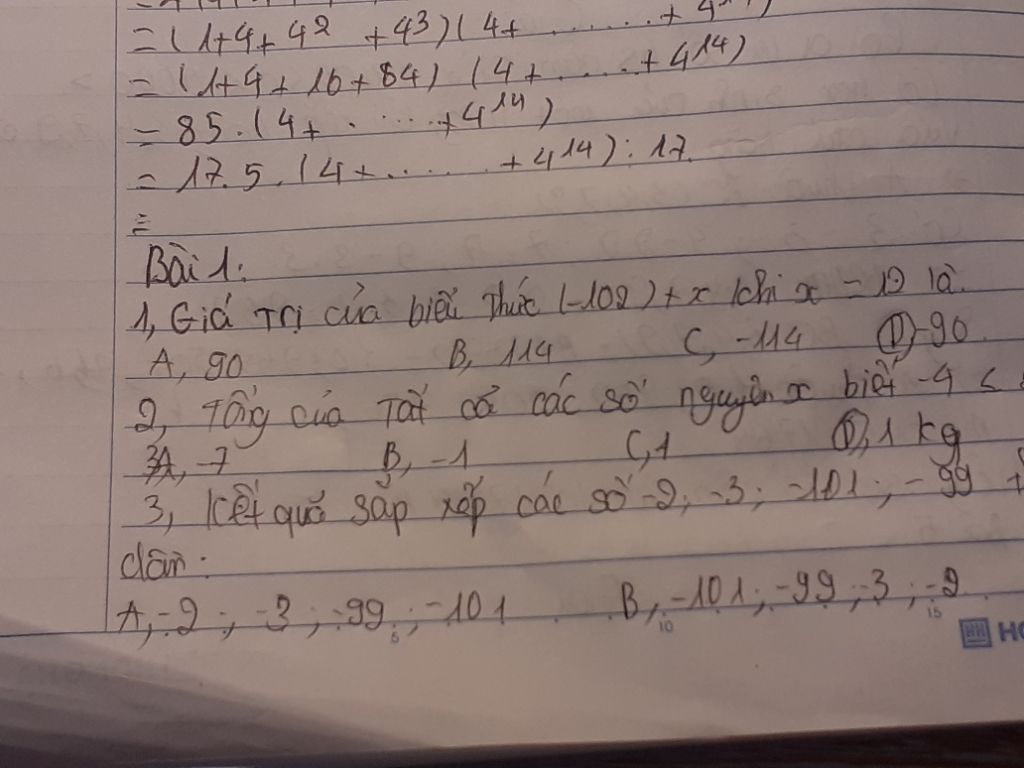 = (1+4+4² +4³)(4+ ........ +4
= (1+4+16+84) (4+ ...... +4¹⁴)
= 85.(4+ ...... +4¹⁴)
= 17.5.(4+ ...... +4¹⁴) : 17.
=
Bài 1:
1, Giá trị của biểu thức (-102)+x khi x = 12 là
A, 90 B, 114 C, -114 D, -90
2, Tổng của tất cả các số nguyên x biết -4 <
A, -7 B, -1 C, 1 D, 1 kg
3, Kết quả sắp xếp các số -2; -3; -101; -99
dần.
A, -2; -3; -99; -101 B, -101; -99; -3; -2
5 10 15